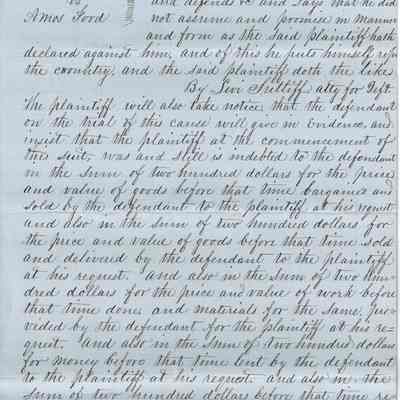 vs and defends &c and says that he did
Amos Ford not assume and promise in manner
and form as the said plaintiff hath
declared against him, and of this he puts himself upon
the country, and the said plaintiff doth the like
By Levi Sutliff atty for Deft.
The plaintiff will also take notice that the defendant
on the trial of this cause will give in Evidence, and
insist that the plaintiff at the commencement of
this suit, was and still is indebted to the defendant
in the sum of two hundred dollars for the price
and value of goods before that time bargained and
sold by the defendant to the plaintiff at his request
and also in the sum of two hundred dollars for
the price and value of goods before that time sold
and delivered by the defendant to the plaintiff
at his request. And also in the Sum of two hun-
dred dollars for the price and value of work before
that time done, and materials for the same, pro-
vided by the defendant for the plaintiff at his re-
quest. and also in the Sum of two hundred dollars
for money before that time lent by the defendant
to the plaintiff at his request. and also in the
Sum of two hundred dollars before that time re